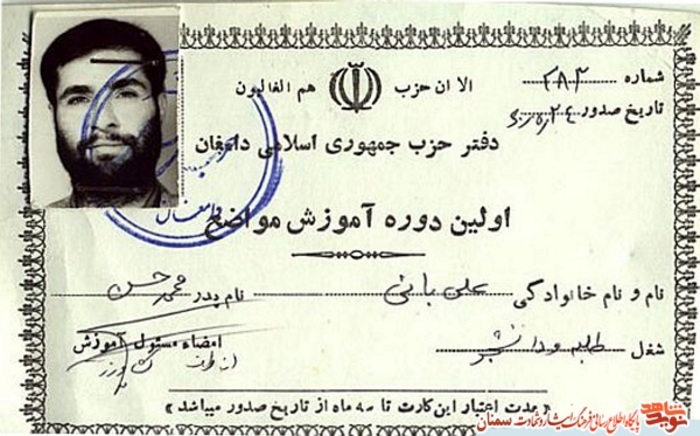 شماره ۲۸۳
الا ان حزب هم الغالبون
تاریخ صدور
دفتر حزب جمهوری اسلامی دامغان
اولین دوره آموزش مواضع
نام و نام خانوادگی علی بانی نام پدر محمد حسن
شغل طلبه و دانشجو
امضاء مسئول آموزش
«مدت اعتبار این کارت تا سه ماه از تاریخ صدور میباشد»
دامغان
نوید شاهد
پایگاه اطلاع رسانی فرهنگ ایثار و شهادت سمنان